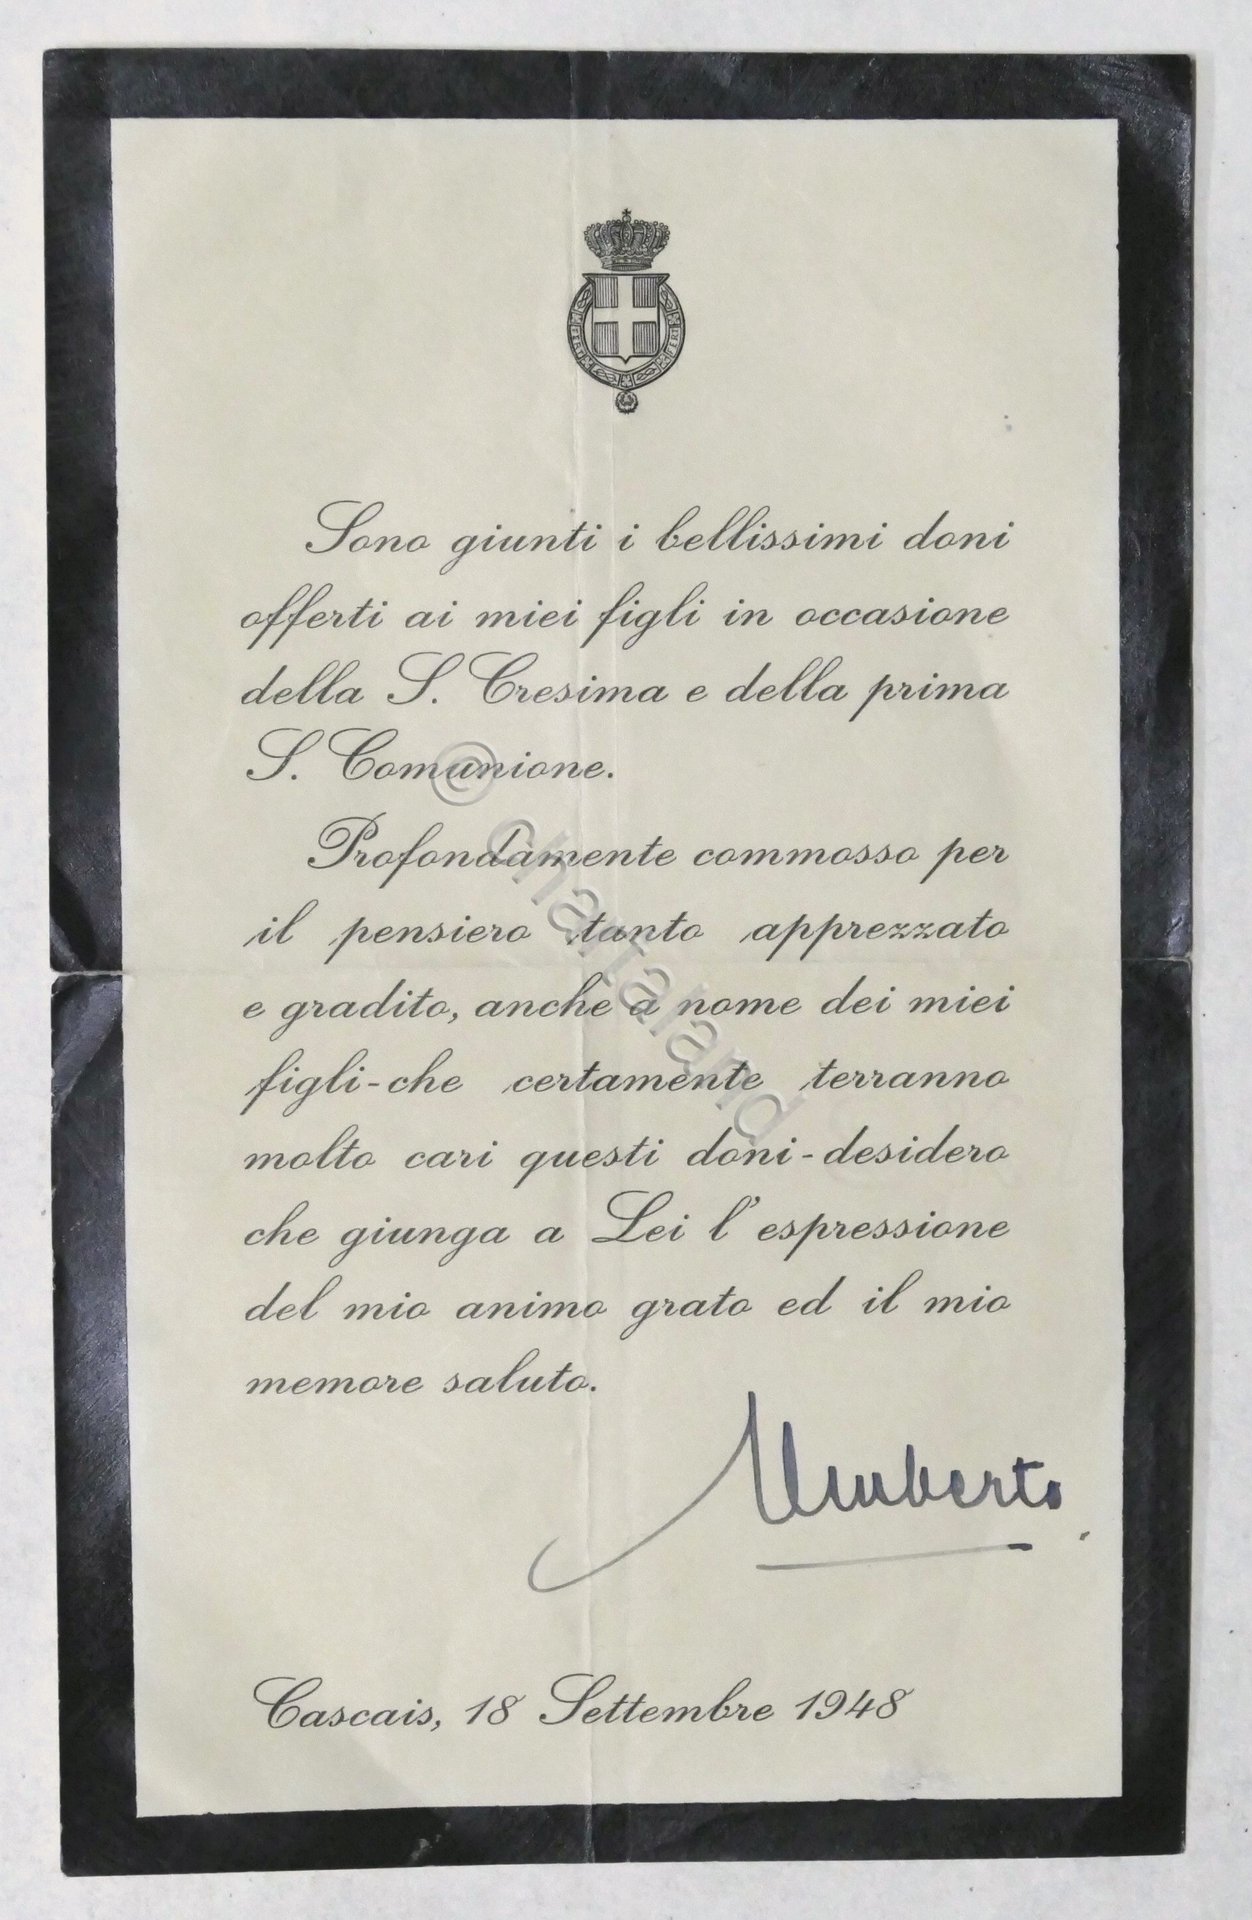 FERT
FERT
Sono giunti i bellissimi doni
offerti ai miei figli in occasione
della S. Cresima e della prima
S. Comunione.
Profondamente commosso per
il pensiero tanto apprezzato
e gradito, anche a nome dei miei
figli-che certamente terranno
molto cari questi doni-desidero
che giunga a Lei l'espressione
del mio animo grato ed il mio
memore saluto.
Umberto
Cascais, 18 Settembre 1948
© chartaland